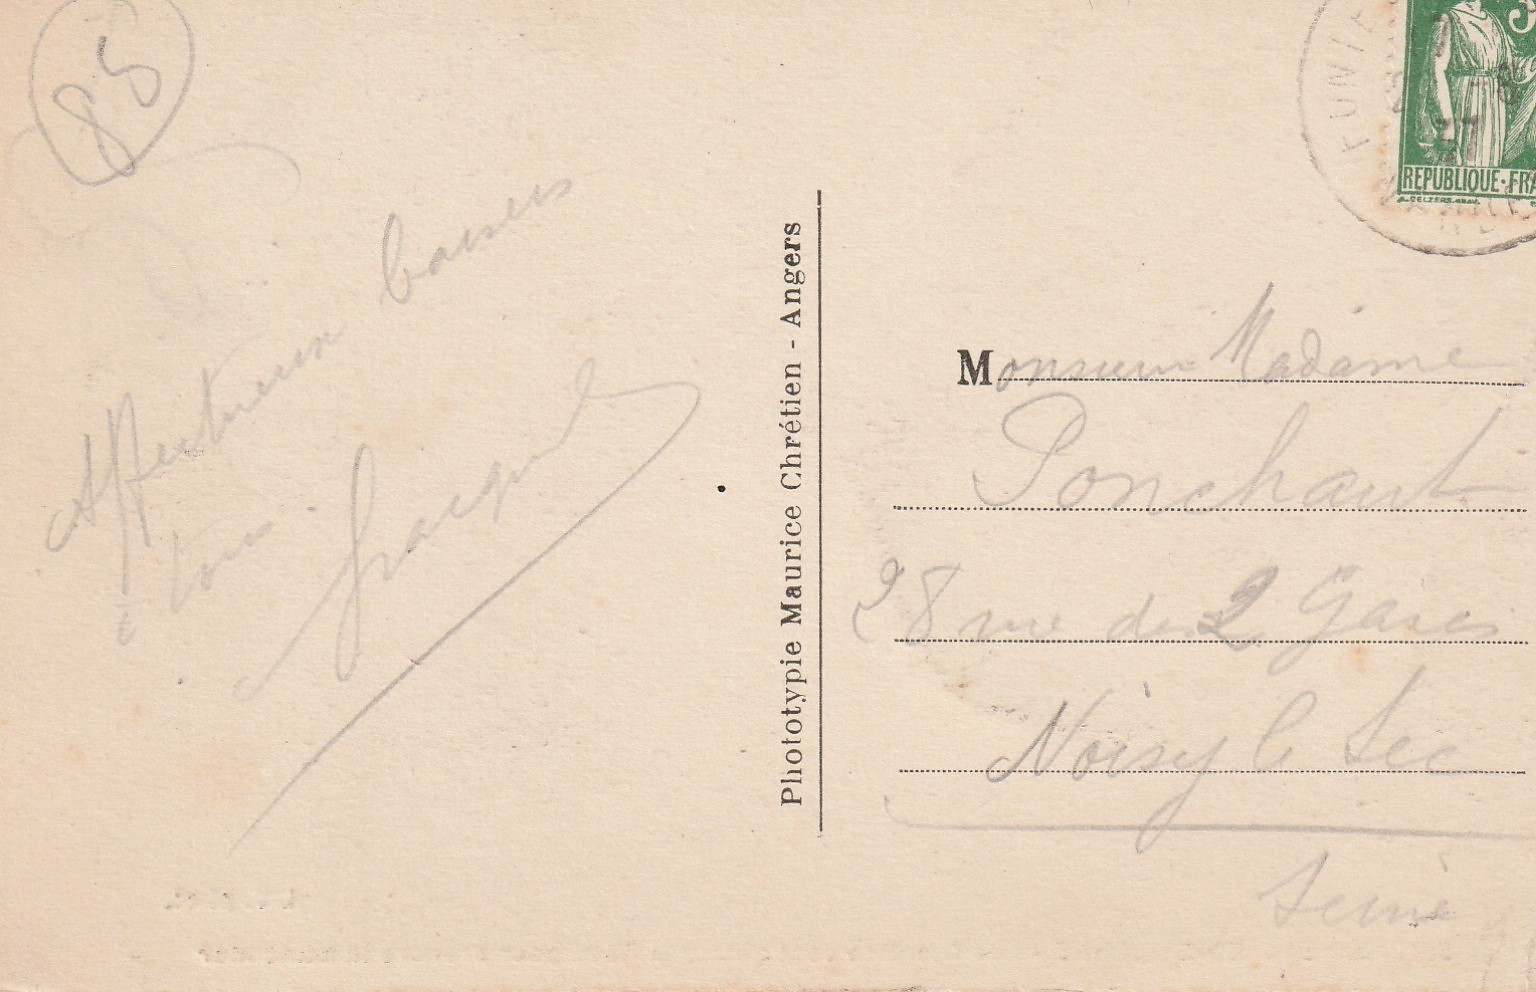 85
Affectueux baisers
à tous.
Jacques
Phototypie Maurice Chrétien - Angers
RÉPUBLIQUE·FRA
37
Monsieur Madame
Ponchaut
28 rue des 2 Gares
Noisy le Sec
Seine